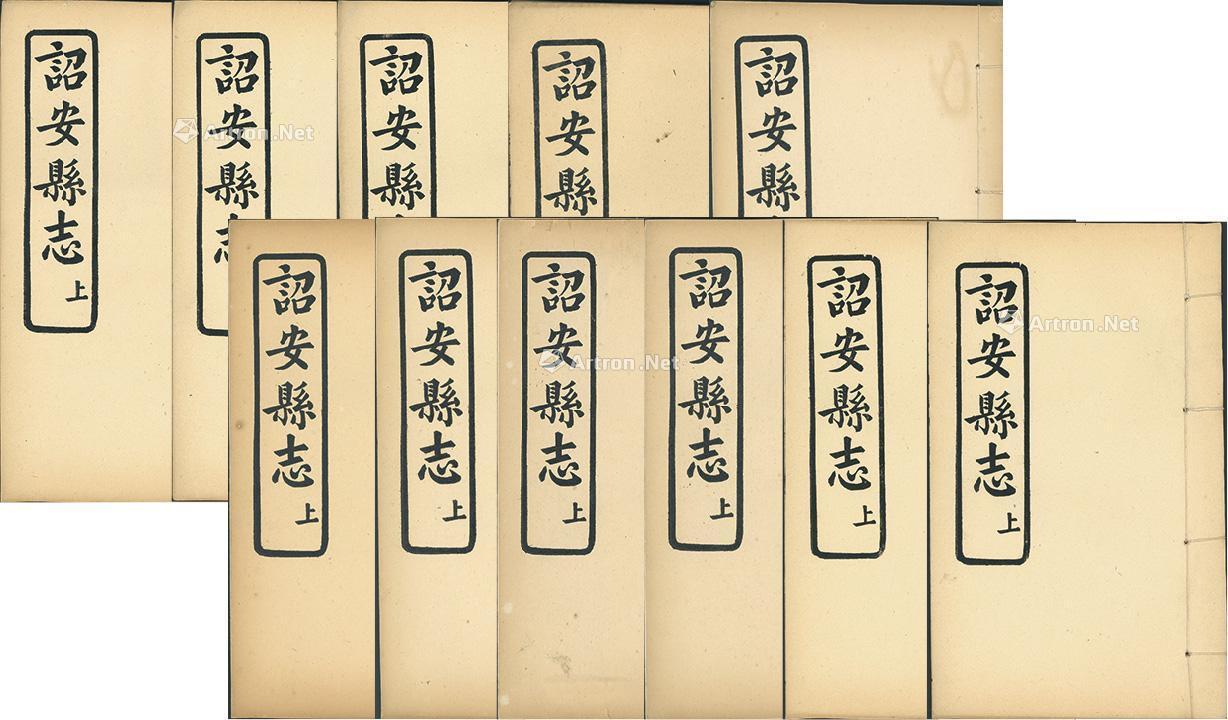 詔安縣志上
詔安縣志
詔安縣
詔安縣
詔安縣
詔安縣志上
詔安縣志上
詔安縣志上
詔安縣志上
詔安縣志上
詔安縣志上
Artron.Net
Artron.Net
Artron.Net